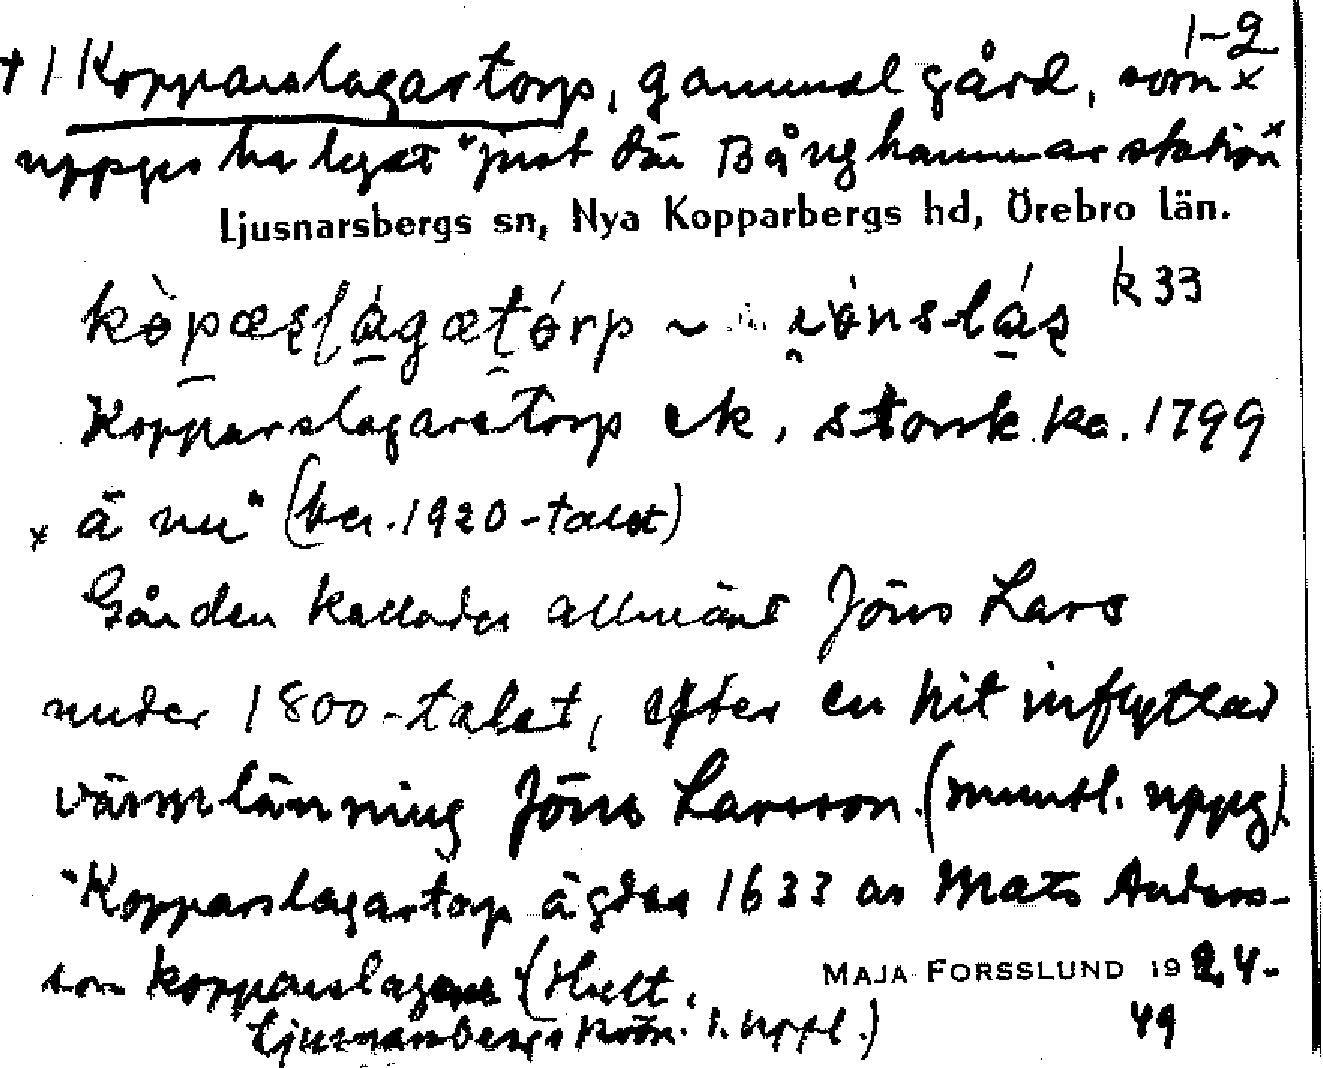 1-2
† 1 Kopparslagartorp, gammal gård, som x
uppges ha legat "just där Bånghammar station x
Ljusnarsbergs sn, Nya Kopparbergs hd, Örebro län.
k 33
Kopparslagaretorp ek, storsk. ka. 1799
x ä nu" (ber. 1920-talet)
Gården kallades allmänt Jöns Lars
under 1800-talet, efter en hit inflyttad
värmlänning Jöns Larsson. (muntl. uppg.)
"Kopparslagartorp ägdes 1633 av Mats Anders-
son kopparslagare (Hult,
Ljusnarsbergs krön. 1. uppl.)
MAJA FORSSLUND 1924-
49